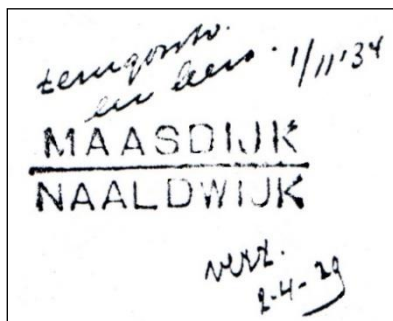 terugontv.
en 1/11'34
MAASDIJK
NAALDWIJK
verz.
2-4-29